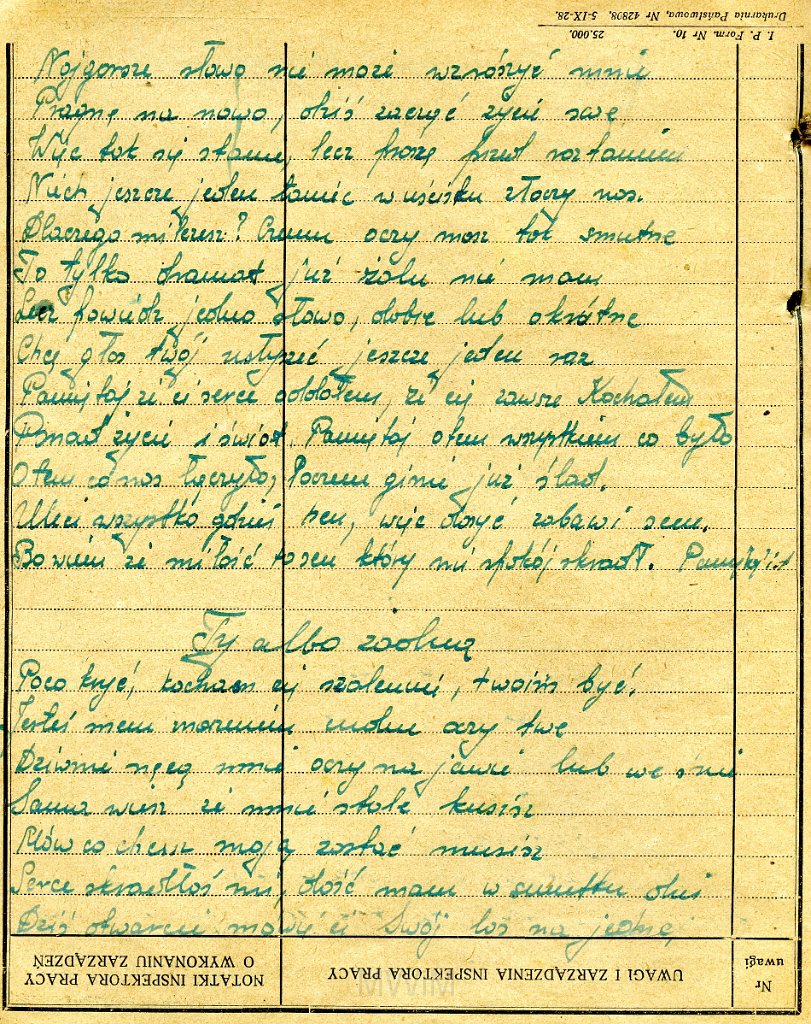 I. P. Form. Nr 10. 25.000.
Drukarnia Państwowa, Nr 42808, 5-IX-28.
Najgorsze słowo nie może wzruszyć mnie
Pragnę na nowo, dziś zacząć życie swe
Więc tak się stanie, lecz proszę przed rozstaniem
Niech jeszcze jeden taniec w uścisku złączy nas.
Dlaczego milczysz? Czemu oczy masz tak smutne
To tylko dramat już żalu nie mam
Lecz powiedz jedno słowo, dobre lub okrutne
Chcę głos twój usłyszeć jeszcze jeden raz
Pamiętaj że ci serce oddałem, że cię zawsze Kochałem
Ponad życie i świat. Pamiętaj otem wszystkim co było
Otem co nas łączyło, Poczem ginie już ślad.
Uleci wszystko gdzieś sen, więc dosyć zabawi scen.
Bo wiem że miłość to sen który mi spokój skradł. Pamiętaj
Ty albo żadna
Poco kryć, kocham cię szalenie, twoim być.
Jesteś mem marzeniem cudne oczy twe
Dziwnie nęcą mnie oczy na jawie lub we śnie
Sama wiesz że mnie stale kusisz
Mów co chcesz moją zostać musisz
Serce skradłaś mi, dość mam w smutku dni
Dziś otwarcie mówię ci Swój los na jedną
NOTATKI INSPEKTORA PRACY O WYKONANIU ZARZĄDZEŃ
UWAGI I ZARZĄDZENIA INSPEKTORA PRACY
Nr uwagi